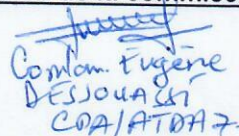 Comlan Eugène
DESSOUASSI
CPA/ATDA7